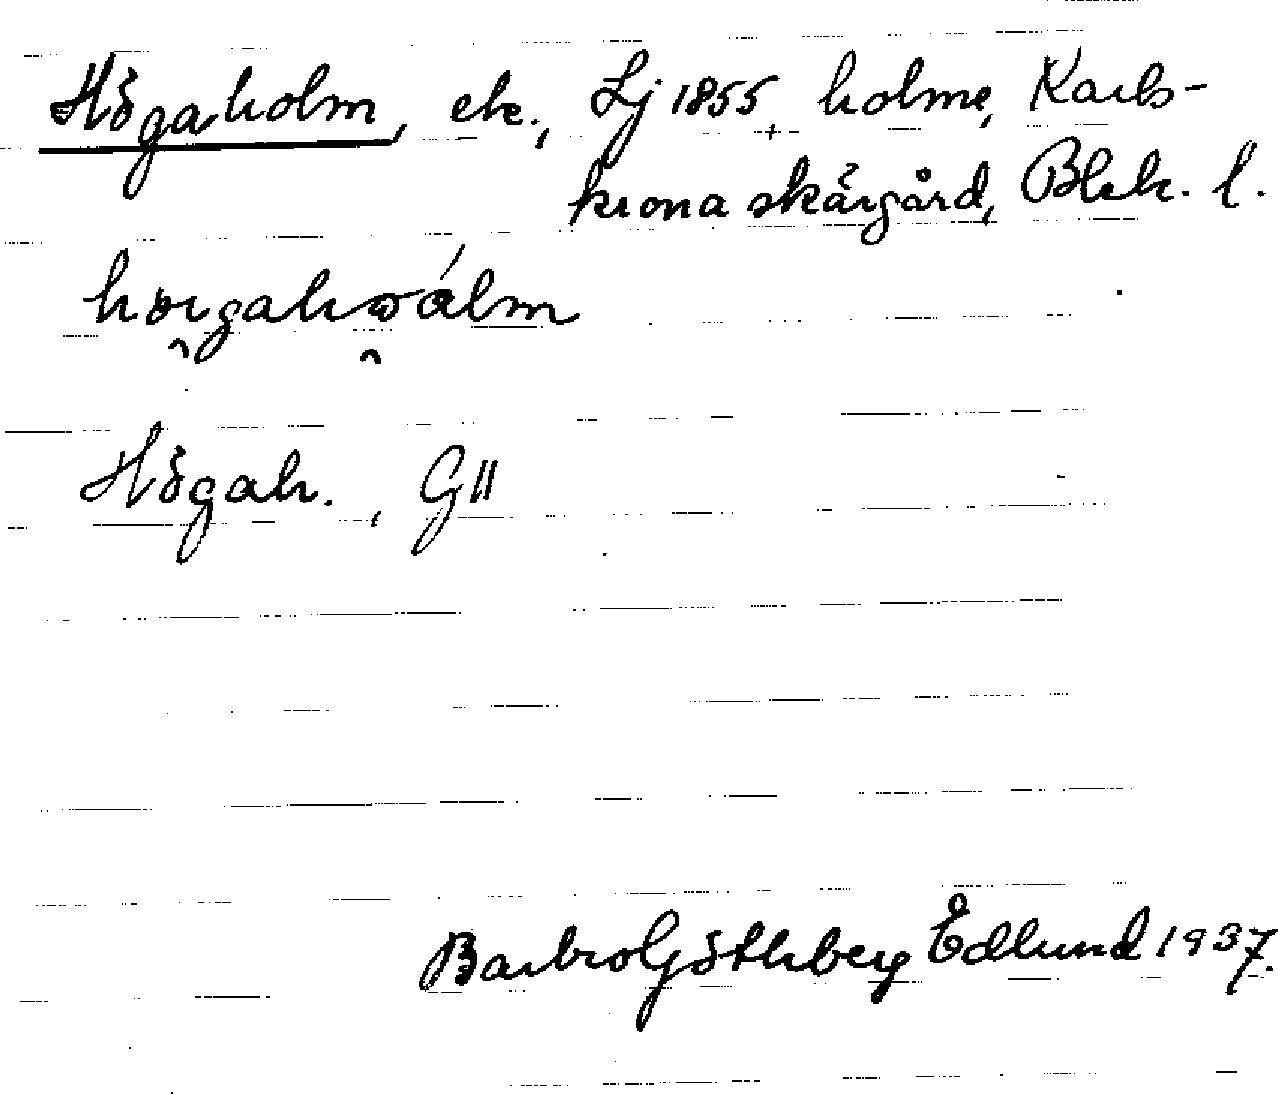 Högaholm, ek., Lj 1855, holme, Karls-
krona skärgård, Blek. l.
Högah., GII
Barbro Götheberg Edlund 1937.